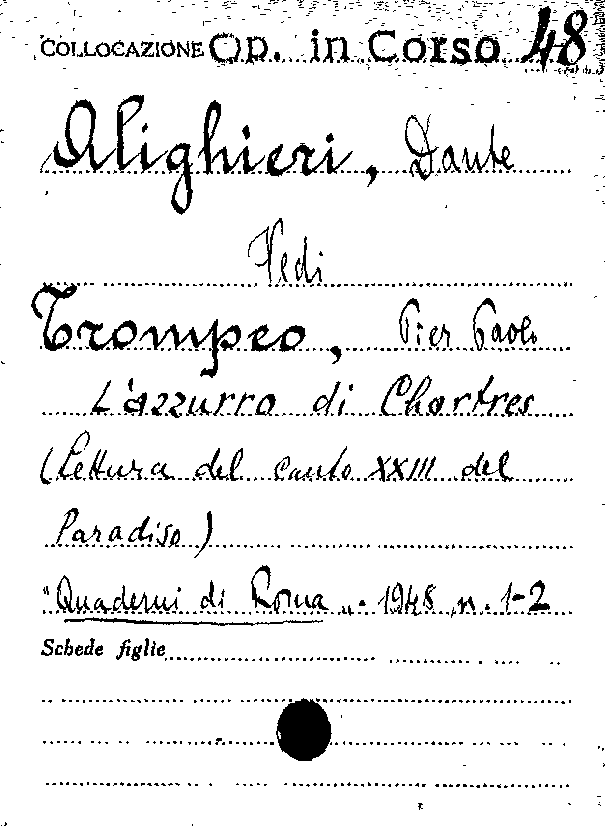 COLLOCAZIONE Op. in Corso 48
Alighieri, Dante
Vedi
Trompeo, Pier Paolo
L'azzurro di Chartres
(Lettura del canto XXIII del
Paradiso)
"Quaderni di Roma„. 1948, n. 1-2
Schede figlie